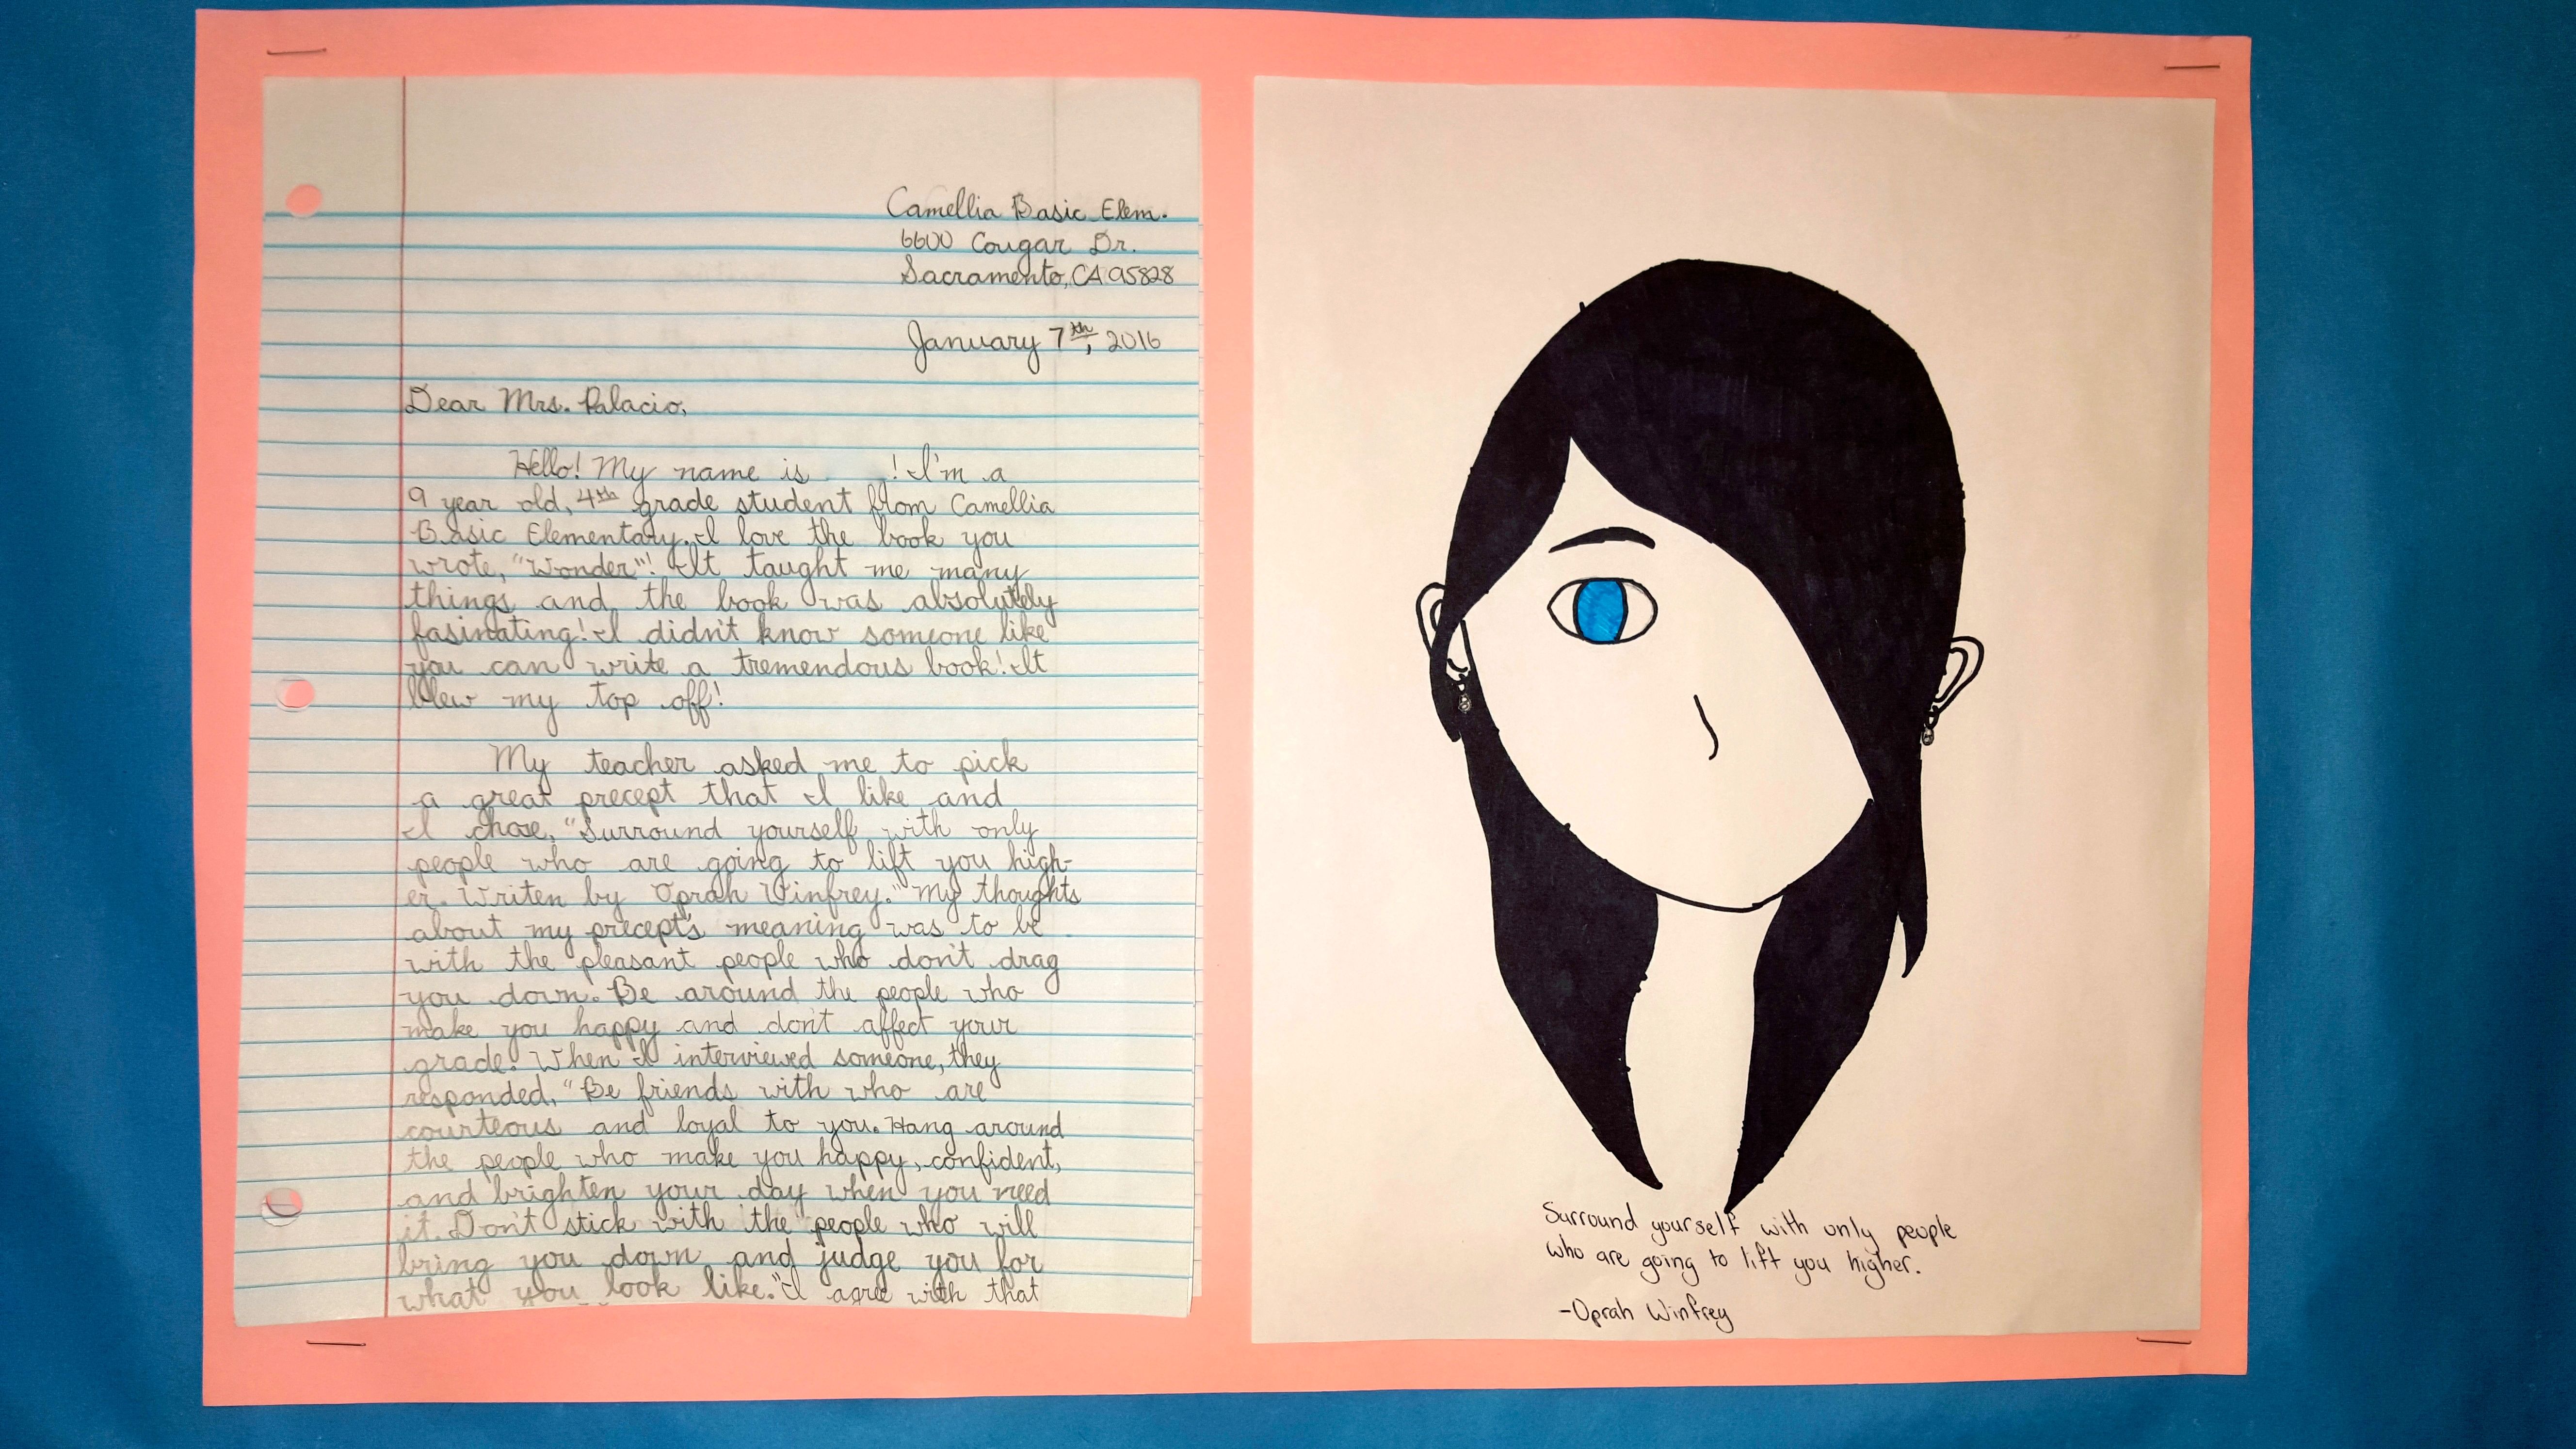 Camellia Basic Elem.
6600 Cougar Dr.
Sacramento, CA 95828
January 7th, 2016
Dear Mrs. Palacio,
Hello! My name is ! I'm a
9 year old, 4th grade student from Camellia
Basic Elementary. I love the book you
wrote, "Wonder"! It taught me many
things and the book was absolutely
fasinating! I didn't know someone like
you can write a tremendous book! It
blew my top off!
My teacher asked me to pick
a great precept that I like and
I chose, "Surround yourself with only
people who are going to lift you high-
er. Writen by Oprah Winfrey." My thoughts
about my precept's meaning was to be
with the pleasant people who don't drag
you down. Be around the people who
make you happy and don't affect your
grade. When I interviewed someone, they
responded, "Be friends with who are
courteous and loyal to you. Hang around
the people who make you happy, confident,
and brighten your day when you need
it. Don't stick with the people who will
bring you down and judge you for
what you look like." I agree with that
Surround yourself with only people
who are going to lift you higher.
-Oprah Winfrey